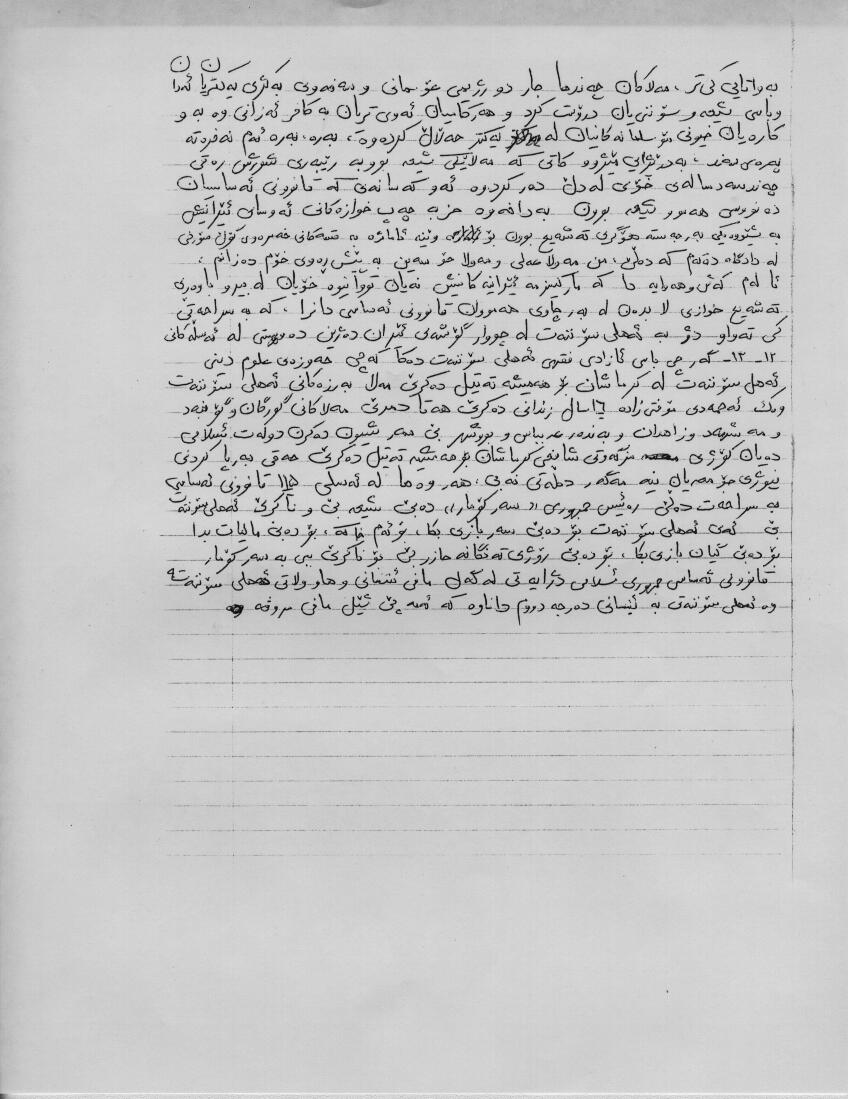 ن ن
بە واتایی کی تر ، مەلاکان چەندها جار دو رژیمی عۆسمانی و سەفەوی بە گژی یەکتریا ئەدا
وباسی شیعە و سۆننی یان درۆست کرد و هەرکامیان ئەوی تریان بە کافر ئەزانی وە بە و
کارەیان خوێنی مۆسلمانەکانیان لە یەکتر حەلاڵ کردەوە، بەرە، بەرە ئەم نەفرەتە
پەرەی سەند ، بەدرێژایی مێژوو کاتی کە مەلایێکی شیعە بوو بە رێبەری شۆرش رەقی
چەند سەد سالەی خۆی لە دڵ دەر کردوە ئەو کەسانەی کە قانونی ئەساسیان
دە نوسی هەموو شیعە بوون بە داخەوە حزبە چەپ خوازەکانی ئەوسای ئێرانیش
بە شێوەیێکی بەرجەستە هۆگری تەشەیع بوون بۆ وێنە ئاماژە بە قسەکانی خەسرەوی گوڵ سۆرخی
لە دادگاە دەکەم کە دەڵێ، من مەولا عەلی و مەولا حۆسەین بە پێش رەوی خۆم دەزانم .
ئا لەم کەش و هەوایە دا کە مارکسیزمە ئێرانیەکانیش نەیان تووانیوە خۆیان لە بیر و باوەری
تەشەیع خوازی لا بدەن لە بەر چاوی هەموان قانونی ئەساسی دانرا ، کە بە سراحەتی
کی تەواو دژ بە ئەهلی سۆننەت لە چووار گۆشەی ئێران دەژین دەوەستی لە ئەسلەکانی
١٢- ١٣- گەر چی باسی ئازادی فقهی ئەهلی سۆننەت دەکا کەچی حەوزەی علوم دینی
ئەهل سۆننەت لە کرماشان بۆ هەمیشە تەتیل دەکرێ مەلا بەرزەکانی ئەهلی سۆننەت
وەک ئەحمەدی مۆفتی زادە ١٦ ساڵ زندانی دەکرێ هەتا دەمرێ مەلاکانی گورگان و گۆنبەد
و مەشهەد و زاهدان و بەندەر عەبباس و بووشهر بێ سەر شوێن دەکرێن دوڵەت ئیسلامی
دەیان کۆژێ مزگەوتی شافعی کرماشان بۆ هەمیشە تەتیل دەکرێ حەقی بەرپا کردنی
نوێژی جۆمعەیان نیە مەگەر دەڵەتی نەبێ ، هەر وەها لە ئەسلی ١١٥ قانونی ئەساسی
بە سراحەت دەڵێ رەئیس جمهوری « سەر کۆمار» دەبێ شیعە بێ و ناکرێ ئەهلی سۆننەت
بێ ئەی ئەهلی سۆننەت بۆ دەبێ سەربازی بکا ، بۆ ئەم خاکە ، بۆ دەبێ مالیات بدا
بۆ دەبێ گیان بازی بکا ، بۆ دەبێ رۆژی تەنگانە حازر بێ بۆ ناکرێ ببی بە سەر کۆمار
قانونی ئەساسی جمهوری ئسلامی دژایەتی لەگەل مافی ئنسانی و هاوولاتی ئەهلی سۆننەت
وە ئەهلی سۆننەتی بە ئینسانی دەرجە دووم داناوە کە ئەمە پێ شێل مافی مرۆڤە